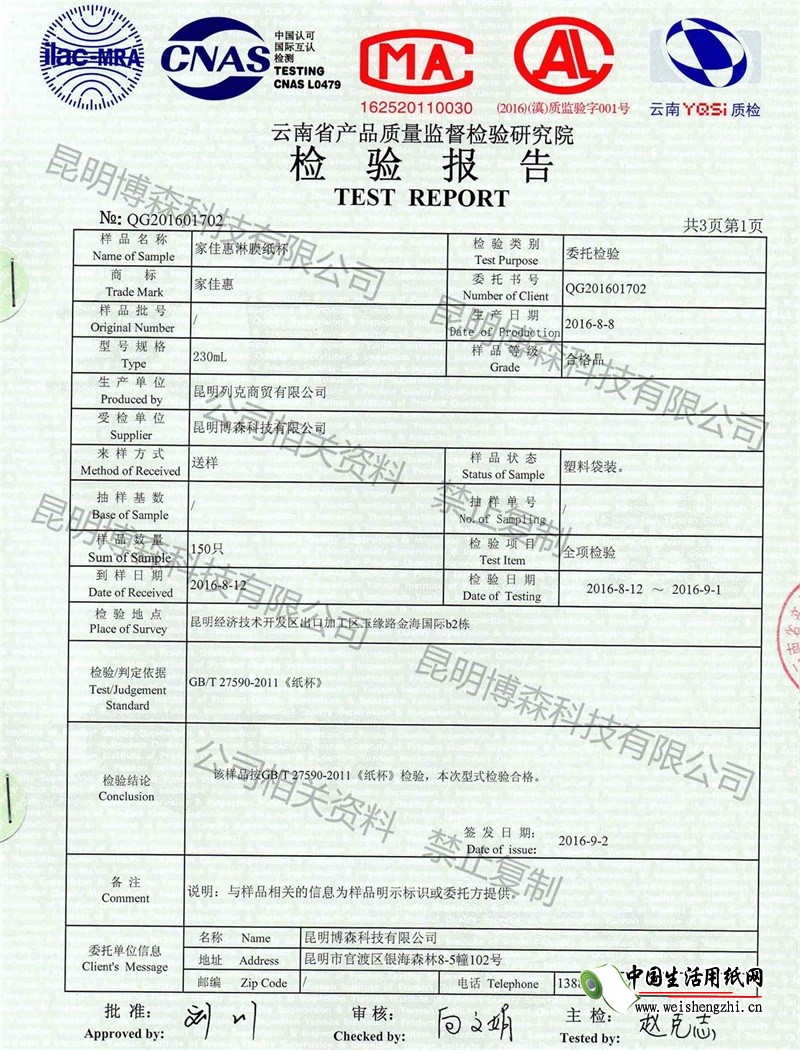 ilac-MRA
CNAS
中国认可
国际互认
检测
TESTING
CNAS L0479
MA
162520110030
CAL
(2016)(滇)质监验字001号
云南 YQSi 质检
云南省产品质量监督检验研究院
检验报告
TEST REPORT
№: QG201601702
共3页第1页
样品名称 家佳惠淋膜纸杯 检验类别 委托检验
Name of Sample Test Purpose
商标 家佳惠 委托书号 QG201601702
Trade Mark Number of Client
样品批号 / 生产日期 2016-8-8
Original Number Date of Production
型号规格 230mL 样品等级 合格品
Type Grade
生产单位 昆明列克商贸有限公司
Produced by
受检单位 昆明博森科技有限公司
Supplier
来样方式 送样 样品状态 塑料袋装。
Method of Received Status of Sample
抽样基数 / 抽样单号 /
Base of Sample No. of Sampling
样品数量 150只 检验项目 全项检验
Sum of Sample Test Item
到样日期 2016-8-12 检验日期 2016-8-12 ~ 2016-9-1
Date of Received Date of Testing
检验地点 昆明经济技术开发区出口加工区玉缘路金海国际b2栋
Place of Survey
检验/判定依据 GB/T 27590-2011《纸杯》
Test/Judgement
Standard
检验结论 该样品按GB/T 27590-2011《纸杯》检验，本次型式检验合格。
Conclusion
签发日期: 2016-9-2
Date of issue:
备注 说明：与样品相关的信息为样品明示标识或委托方提供。
Comment
委托单位信息 名称 Name 昆明博森科技有限公司
Client's Message 地址 Address 昆明市官渡区银海森林8-5幢102号
邮编 Zip Code / 电话 Telephone 138
批准: 刘川 审核: 向文娟 主检: 赵克志
Approved by: Checked by: Tested by:
昆明博森科技有限公司
昆明博森科技有限公司
公司相关资料 禁止复制
昆明博森科技有限公司
昆明博森科技有限公司
公司相关资料 禁止复制
中国生活用纸网
www.weishengzhi.cn